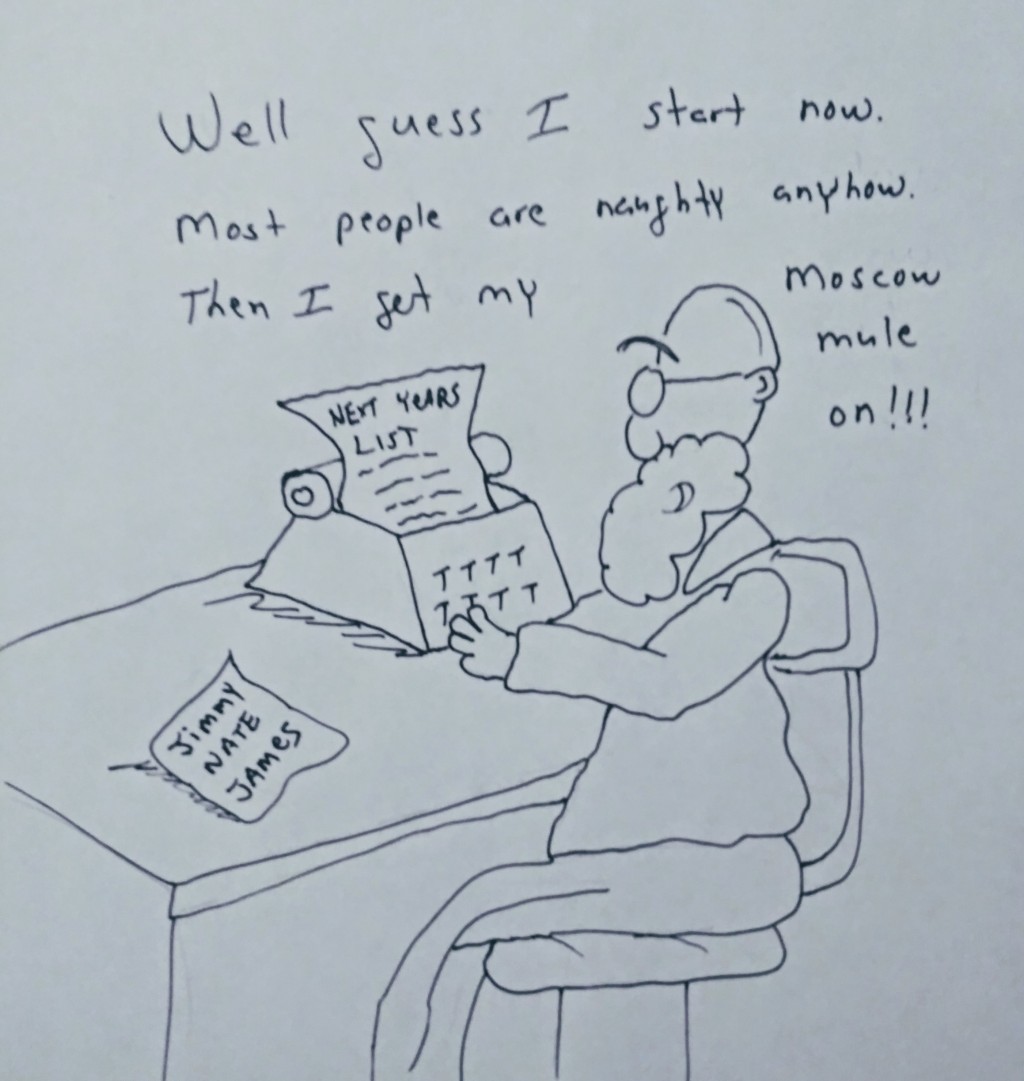 Well guess I start now.
Most people are naughty anyhow.
Then I get my Moscow
mule
on!!!
NEXT YEARS
LIST
TTTT
TTTT
Jimmy
NATE
JAMES